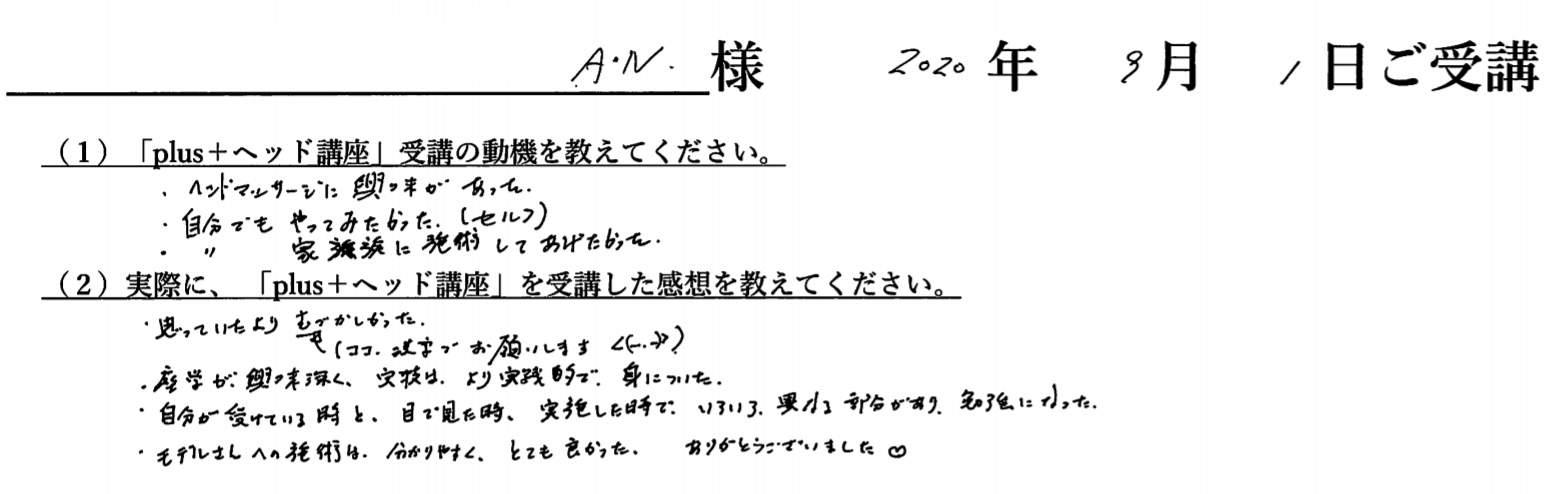 A.N. 様 2020年 9月 1日ご受講
（1）「plus＋ヘッド講座」受講の動機を教えてください。
・ヘッドマッサージに興味があった。
・自分でもやってみたかった。(セルフ)
・〃 家族に施術してあげたかった。
（2）実際に、「plus＋ヘッド講座」を受講した感想を教えてください。
・思っていたよりむずかしかった。
(ココ、漢字でお願いします <(..)>)
・座学が、興味深く、実技は、より実践的で、身についた。
・自分が受けている時と、目で見た時、実施した時で、いろいろ、異なる部分があり、勉強になった。
・モデルさんへの施術は、分かりやすく、とても良かった。 ありがとうございました♡